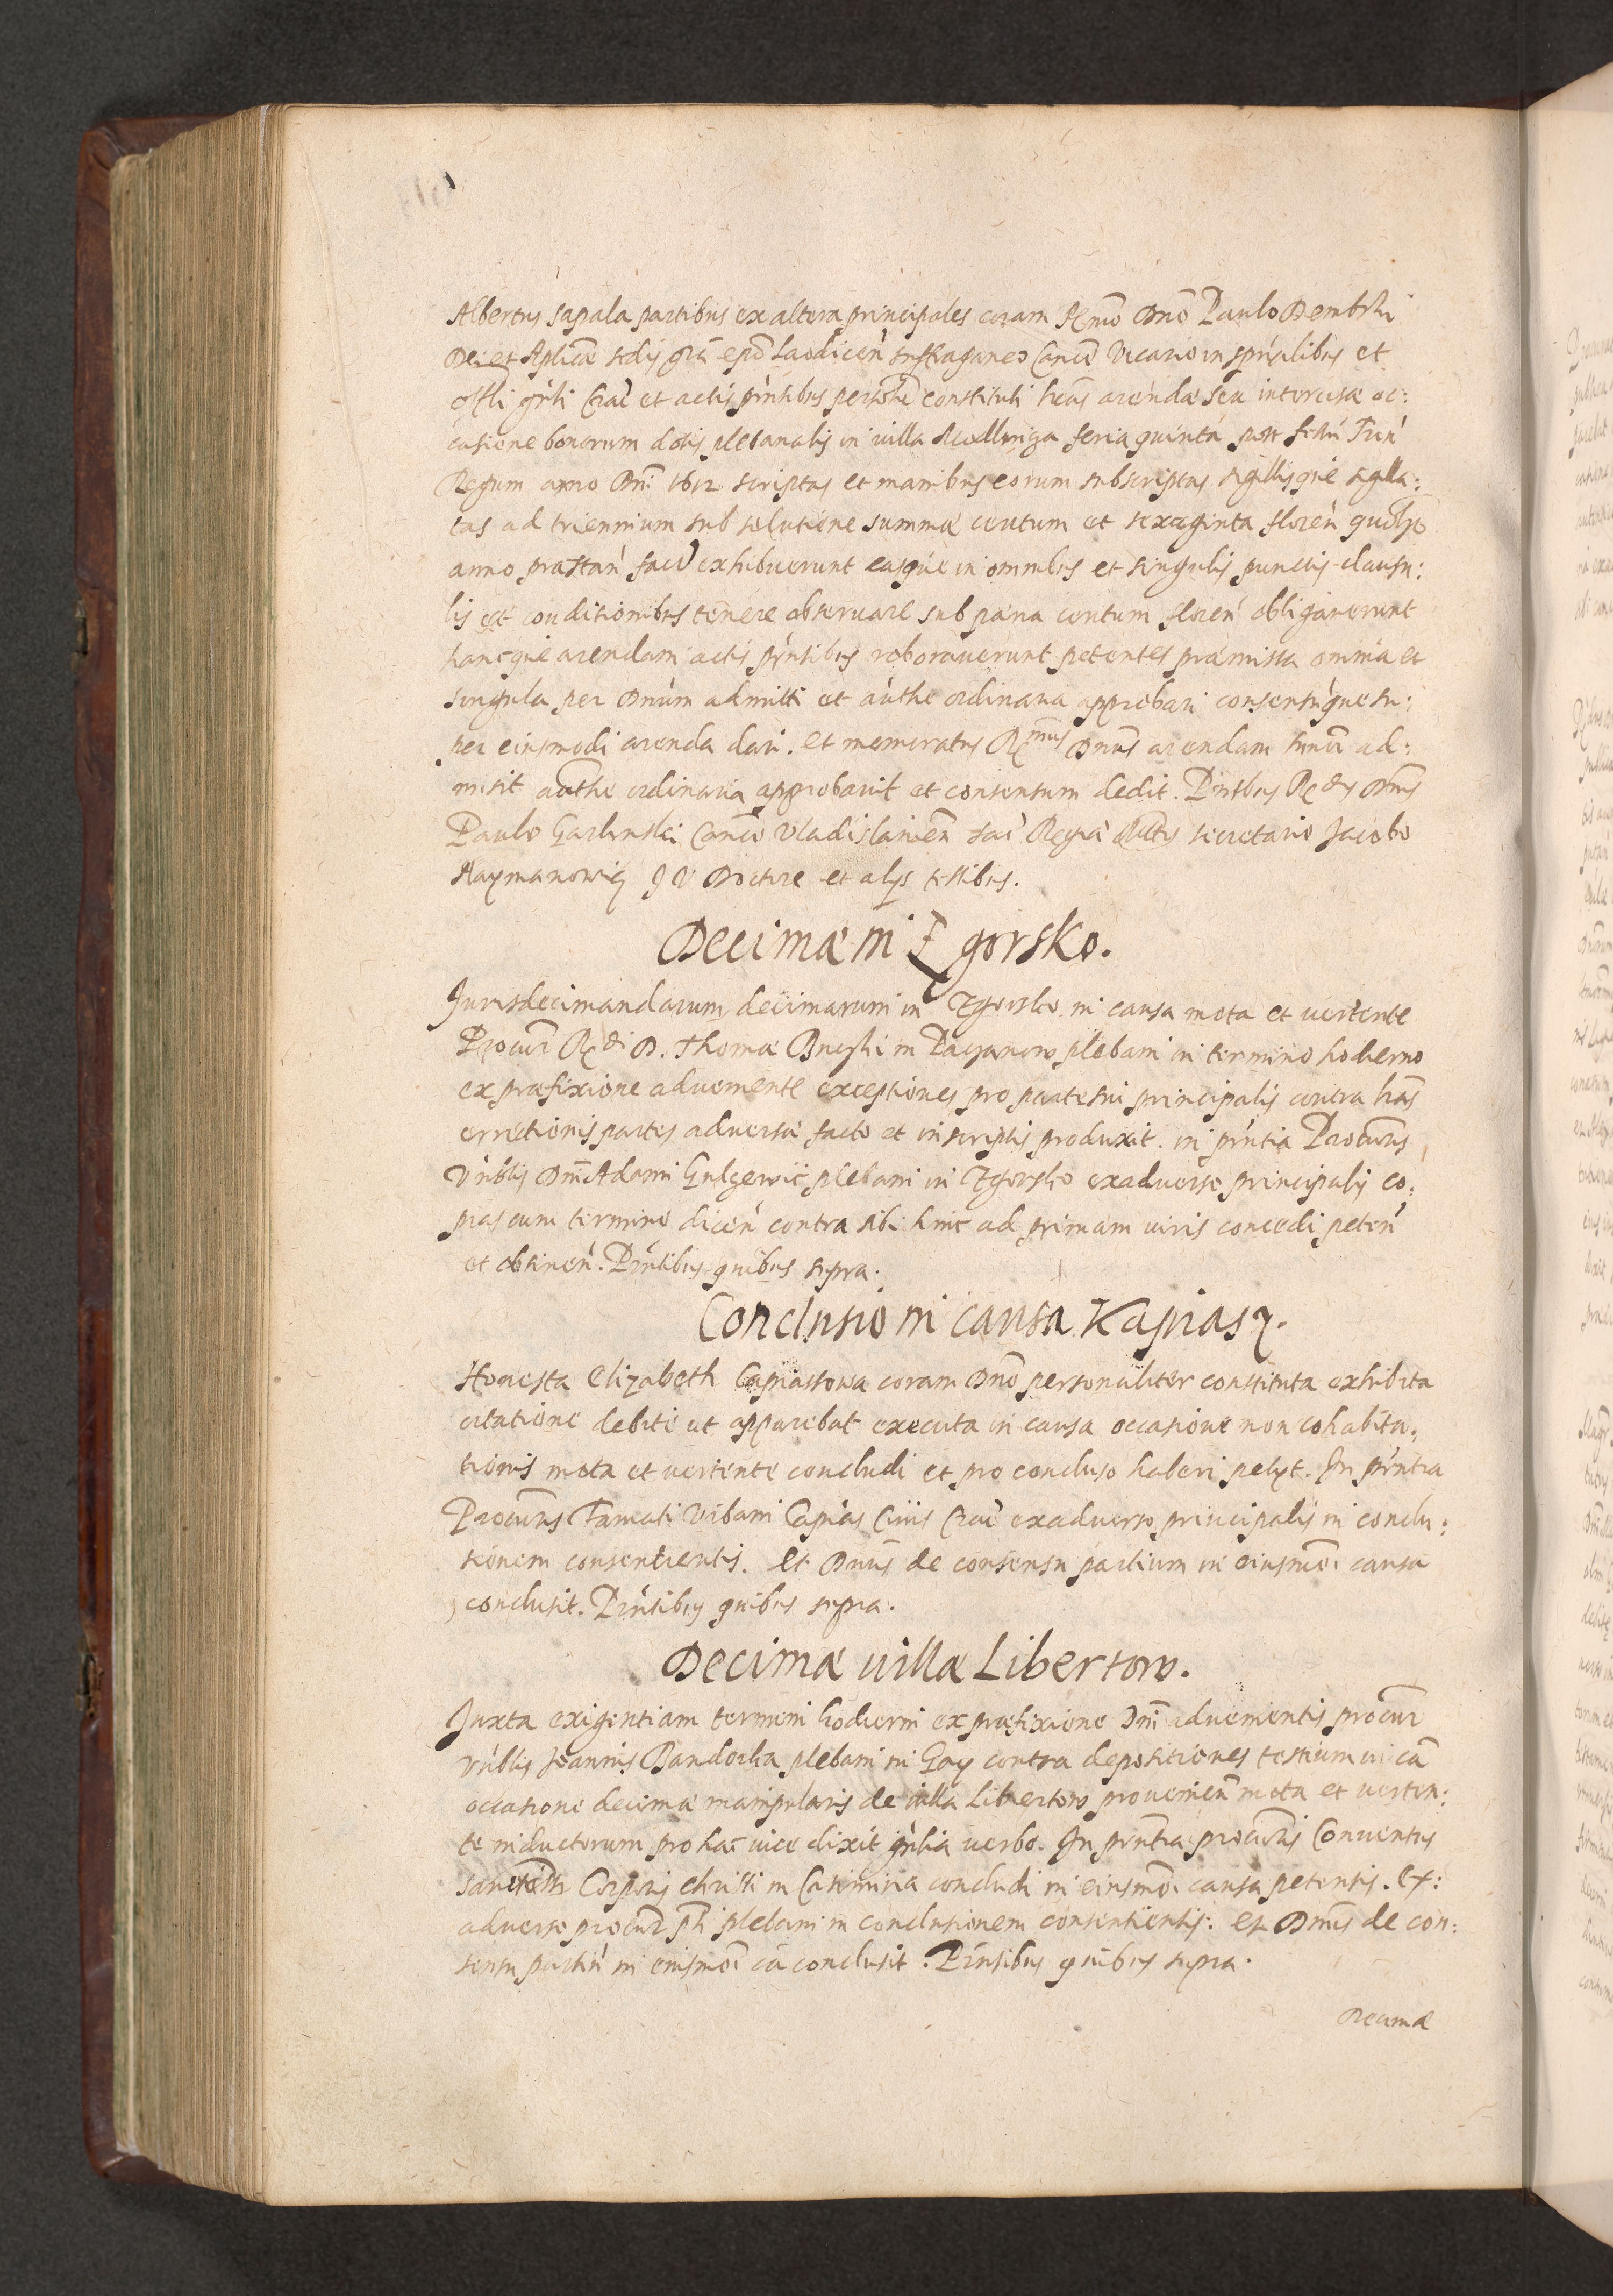 Albertus Sapala partibus ex altera principales coram Rmo Dno Paulo Dembski
Dei et Aplicæ sedis grã epõ Laodiceñ suffraganeo Canco Vicario in spũalibus et
offli gñli Crac et actis pñtibus persõnlr constituti lras arendæ seu intercisæ oc:
casione bonorum dotis plebanalis in villa feria quinta post festũ Triũ
Regum anno Dni 1612 scriptas et manibus eorum subscriptas sigillisque sigilla:
tas ad triennium sub solutione summæ centum et sexaginta floreñ quolzo
anno præstan facd exhibuerunt easque in omnibus et singulis punctis clausu:
lis et conditionibus tenere observare sub pæna centum floreñ obligaverunt
hancque arendam actis pñtibus roboraverunt petentes præmissa omnia et
singula per Dnum admitti et authe ordinaria approbari consensũque su:
per eiusmodi arenda dari. Et memoratus Rmus Dnus arendam hmõi ad:
misit authe ordinaria approbavit et consensum dedit. Pñtibus Rdis Dnis
Paulo Garlinski Canco Vladislavieñ Sac Regiæ Mttis secretario Jacobo
Naymanowicz J V Doctore et alijs testibus.
Decimæ in Zgorsko.
Juris decimandarum decimarum in Zgorsko in causa mota et vertente
Procur Rdi D. Thomæ in Pacanow plebani in termino hodierno
ex præfixione adveniente exceptiones pro parte sui principalis contra lras
errectionis partis adversæ facto et in scriptis produxit. in pñtia Procuris
Vñblis Dni Adami plebani in Zgorsko ex adverso principalis co:
pias cum termino diceñ contra sibi hinc ad primam iuris concedi peteñ
et obtineñ. Pñtibus quibus supra.
Conclusio in causa Kapiasz.
Honesta Elizabeth Capiastowa coram Dno personaliter constituta exhibita
citatione debite ut apparebat executa in causa occasione non cohabita:
tionis mota et vertente concludi et pro concluso haberi petyt. In pñtia
Procuris Famati Urbani Capias Civis Crac ex adverso principalis in conclu:
sionem consentientis. Et Dnus de consensu partium in eiusmoi causa
conclusit. Pñtibus quibus supra.
Decimæ villæ Libertow.
Juxta exigentiam termini hodierni ex præfixione Dni advenientis procur
Vñblis Joannis Bandorka plebani in Gay contra depositiones testium in cã
occasione decimæ manipularis de villa Libertow provenieñ mota et verten:
te inductorum pro hac vice dixit gñlia verbo. In pñtia procuris Conventus
Corporis Christi in Casimiria concludi in eiusmoi causa petentis. Ex:
adverso procur pti plebani in conclusionem consentientis. Et Dnus de con:
sensu partiũ in eiusmoi cã conclusit. Pñtibus quibus supra.
Decimæ